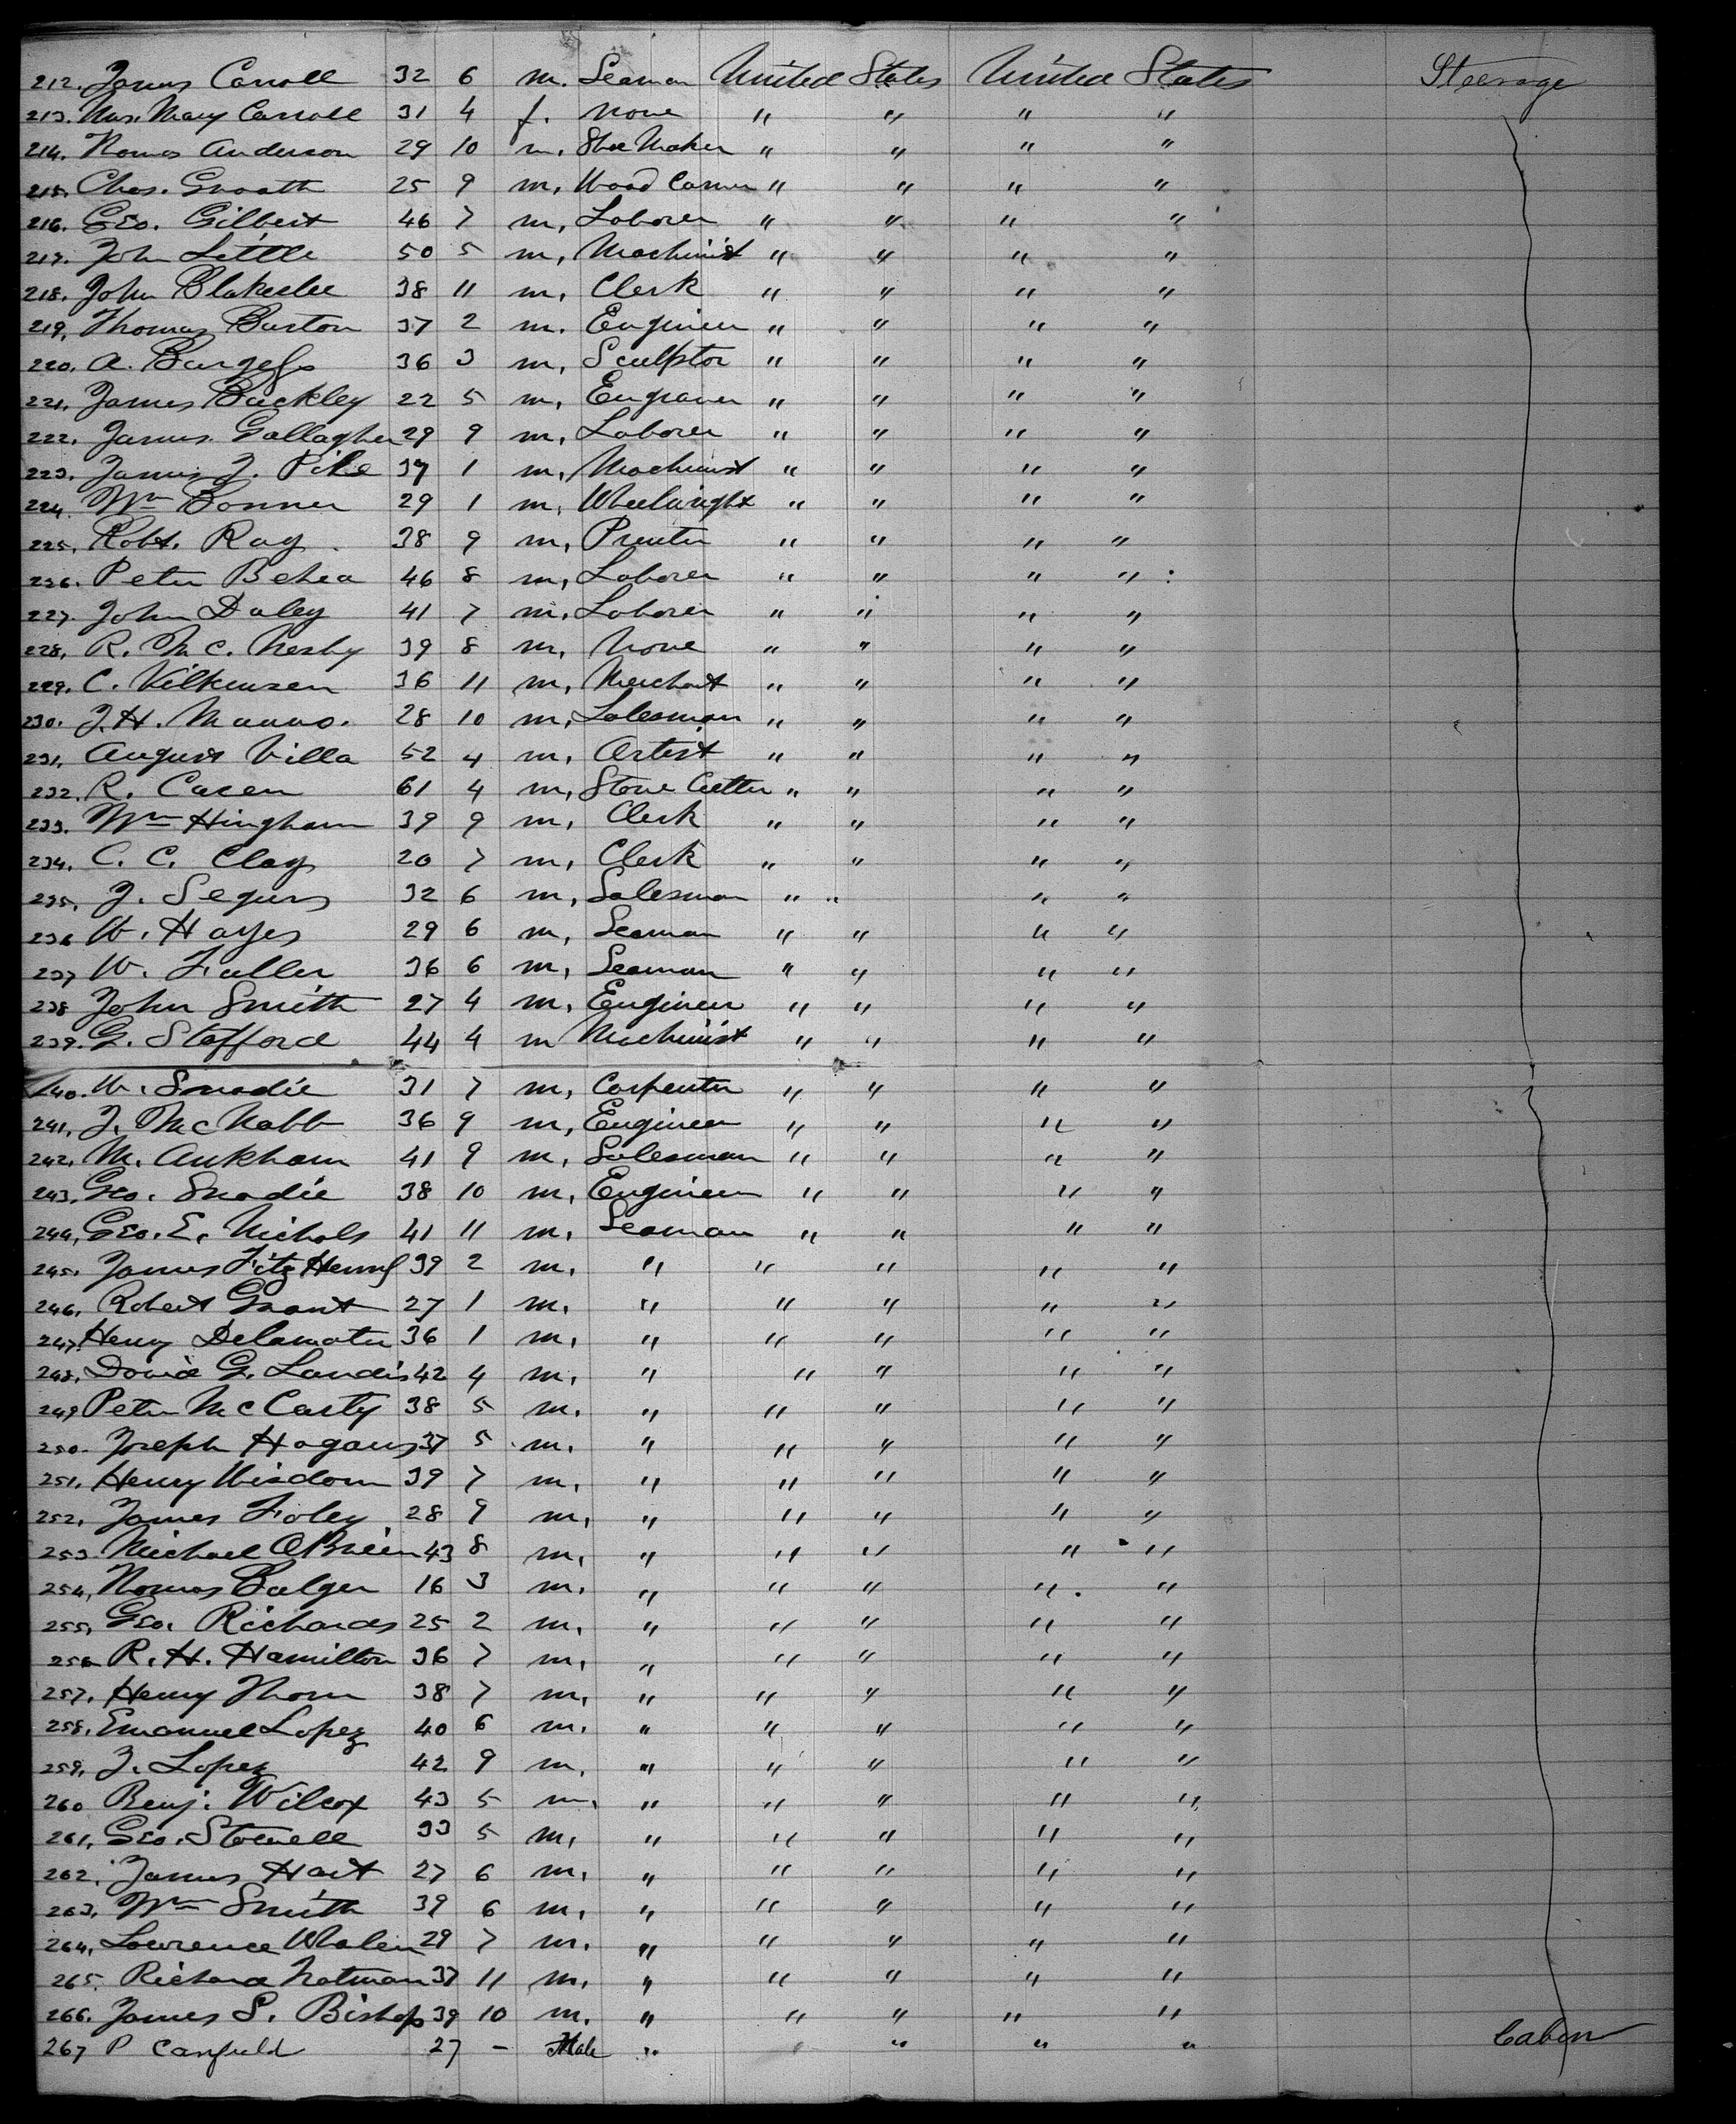 212. James Carroll 32 6 m. Seaman United States United States Steerage
213. Mrs. Mary Carroll 31 4 f. None " " " "
214. Thomas Anderson 29 10 m. Shoe Maker " " " "
215. Chas. Groath 25 9 m. Wood Carver " " " "
216. Geo. Gilbert 46 7 m. Laborer " " " "
217. John Little 50 5 m. Machinist " " " "
218. John Blakeslee 38 11 m. Clerk " " " "
219. Thomas Burton 37 2 m. Engineer " " " "
220. A. Burgess 36 3 m. Sculptor " " " "
221. James Buckley 22 5 m. Engraver " " " "
222. James Gallagher 29 9 m. Laborer " " " "
223. James J. Pike 37 1 m. Machinist " " " "
224. Wm Bonner 29 1 m. Wheelwright " " " "
225. Robt. Ray 38 9 m. Printer " " " "
226. Peter Behea 46 8 m. Laborer " " " "
227. John Daley 41 7 m. Laborer " " " "
228. R. Mc. Nesby 39 8 m. None " " " "
229. C. Vilkensen 36 11 m. Merchant " " " "
230. J. H. Munno. 28 10 m. Salesman " " " "
231. August Villa 52 4 m. Artist " " " "
232. R. Casen 61 4 m. Stone Cutter " " " "
233. Wm Hingham 39 9 m. Clerk " " " "
234. C. C. Clay 20 7 m. Clerk " " " "
235. J. Segurs 32 6 m. Salesman " " " "
236 W. Hayes 29 6 m. Seaman " " " "
237 W. Fuller 36 6 m. Seaman " " " "
238 John Smith 27 4 m. Engineer " " " "
239. G. Stafford 44 4 m Machinist " " " "
240. W. Snadie 31 7 m. Carpenter " " " "
241. J. McNabb 36 9 m. Engineer " " " "
242. M. Aukham 41 9 m. Salesman " " " "
243. Geo. Snadie 38 10 m. Engineer " " " "
244. Geo. E. Nichols 41 11 m. Seaman " " " "
245. James Fitz Henry 39 2 m. " " " " "
246. Robert Grant 27 1 m. " " " " "
247. Henry Delamater 36 1 m. " " " " "
248. David G. Landis 42 4 m. " " " " "
249 Peter McCarty 38 5 m. " " " " "
250. Joseph Hogans 37 5 m. " " " " "
251. Henry Wisdom 39 7 m. " " " " "
252. James Foley 28 9 m. " " " " "
253. Michael OBrien 43 8 m. " " " " "
254. Thomas Bulger 16 3 m. " " " " "
255. Geo. Richards 25 2 m. " " " " "
256 R. H. Hamilton 36 7 m. " " " " "
257. Henry Thorn 38 7 m. " " " " "
258. Emanuel Lopez 40 6 m. " " " " "
259. J. Lopez 42 9 m. " " " " "
260 Benj. Wilcox 43 5 m. " " " " "
261. Geo. Stowell 33 5 m. " " " " "
262. James Hart 27 6 m. " " " " "
263. Wm Smith 39 6 m. " " " " "
264. Lawrence Whalen 29 7 m. " " " " "
265. Richard Notman 37 11 m. " " " " "
266. James S. Bishop 39 10 m. " " " " "
267 P Canfield 27 - Male " " " " Cabin